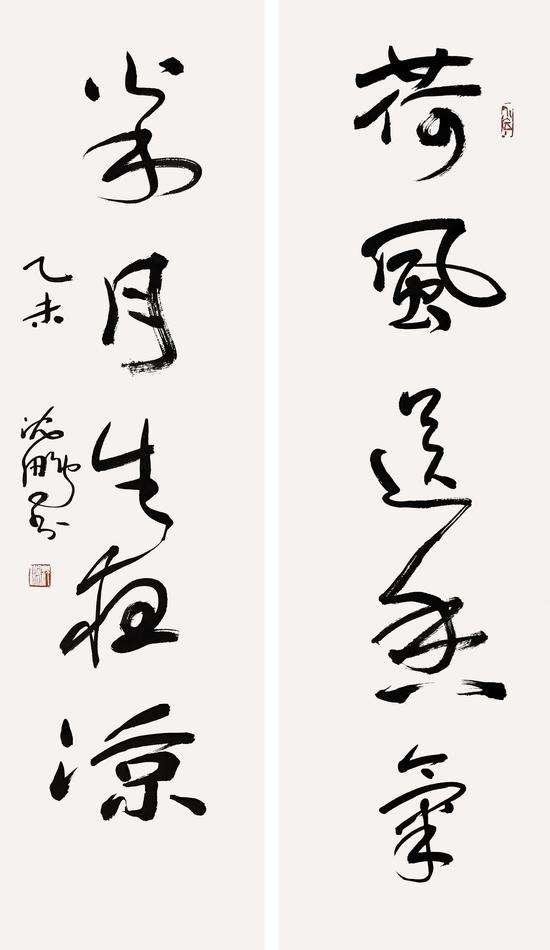 荷風送香氣
月生涼
乙未 沈鵬書